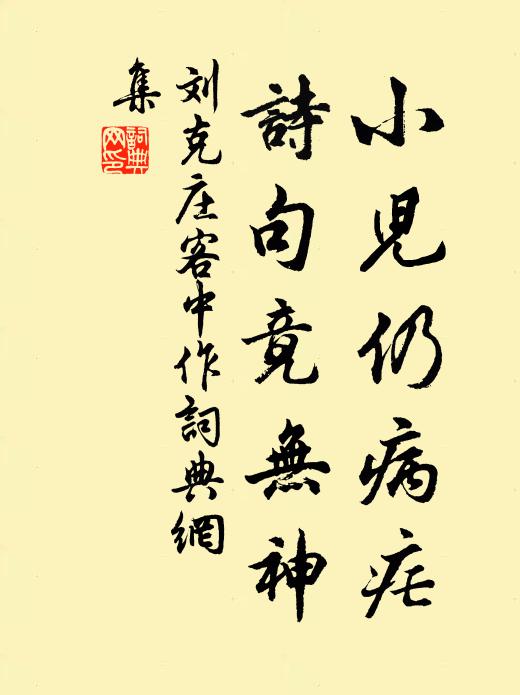 小児仍病疟
詩句竟無神
刘克庄客中作詞典網
集
詞典網印